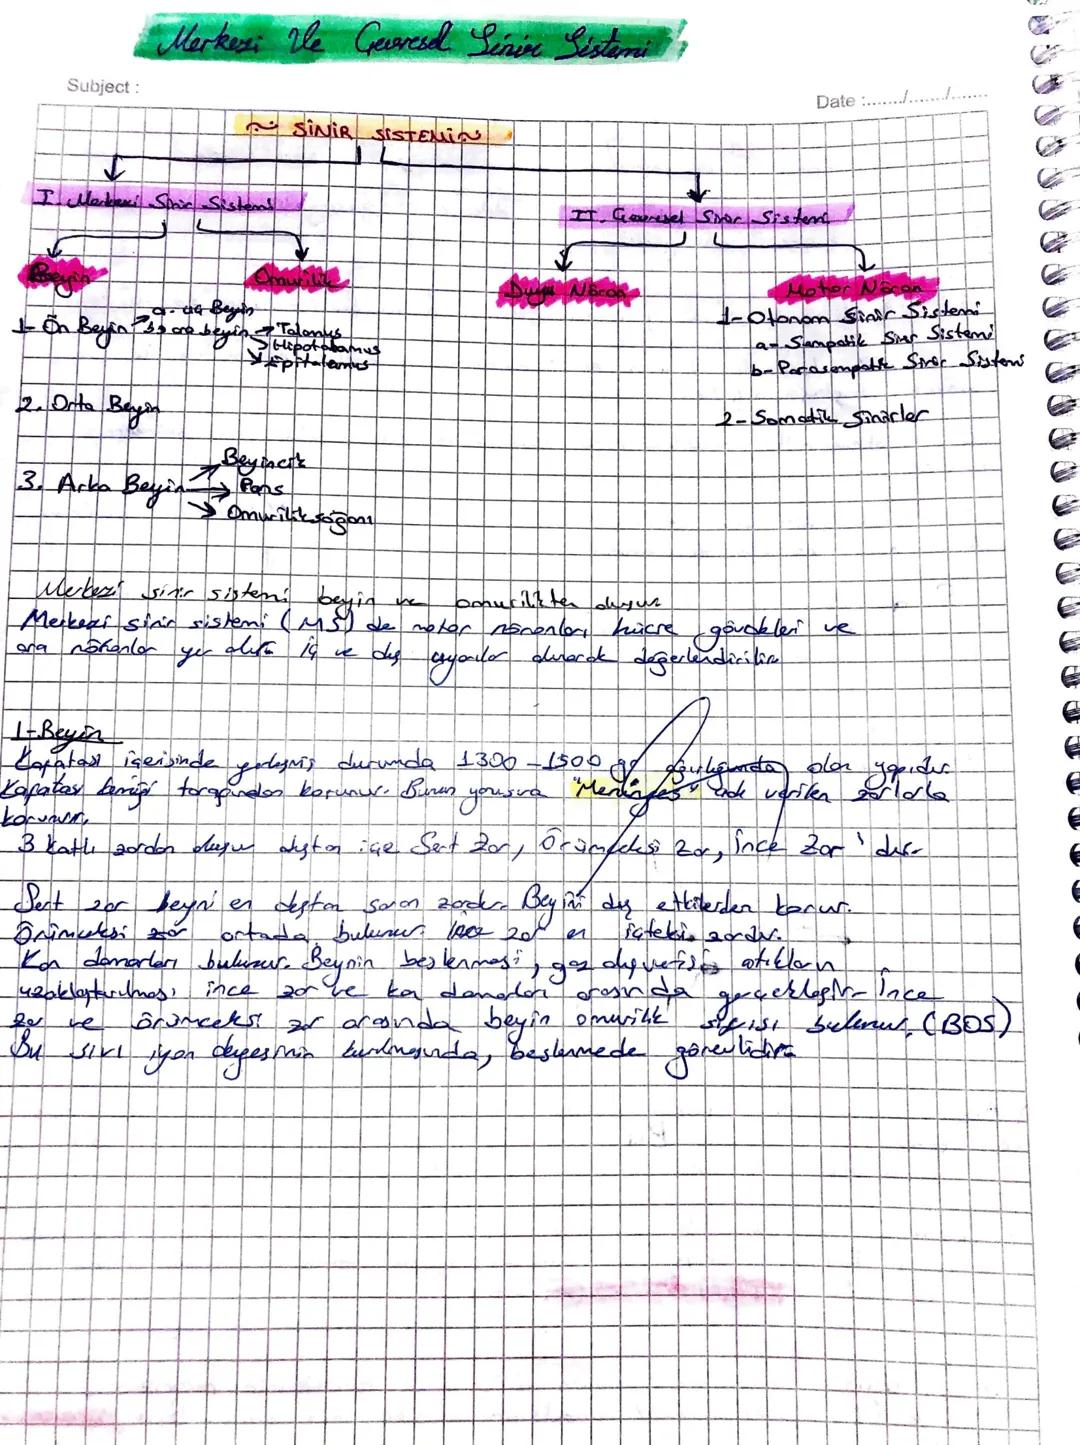 Merkezi Ve Çevresel Sinir Sistemi
Subject :
Date :......./......./.......
~ SİNİR SİSTEMİ ~
I. Merkezi Sinir Sistemi
II. Çevresel Sinir Sistemi
Beyin
Omurilik
Duyu Nöron
Motor Nöron
1- Ön Beyin
a- uç Beyin
b- ara beyin
Talamus
Hipotalamus
Epitalamus
2. Orta Beyin
3. Arka Beyin
Beyincik
Pons
Omurilik soğanı
1- Otonom Sinir Sistemi
a- Sempatik Sinir Sistemi
b- Parasempatik Sinir Sistemi
2- Somatik Sinirler
Merkezi sinir sistemi beyin ve omurilikten oluşur
Merkezi sinir sistemi (MS) de motor nöronları, hücre gövdeleri ve
ara nöronlar yer alır. İç ve dış uyarılar alınarak değerlendirilir
1-Beyin
Kafatası içerisinde yerleşmiş durumda 1300 - 1500 gr ağırlığında olan yapıdır.
Kafatası kemiği tarafından korunur. Bunun yanısıra "Meninges" adı verilen zarlarla
korunur.
3 katlı zardan oluşur dıştan içe Sert Zar, Örümceksi Zar, İnce Zar 'dır.
Sert zar beyni en dıştan saran zardır. Beyini dış etkilerden korur.
Örümceksi zar ortada bulunur. İnce zar en içteki zardır.
Kan damarları bulunur. Beynin beslenmesi, gaz alışverişi, atıkların
uzaklaştırılması ince zar ve kan damarları arasında gerçekleşir. İnce
zar ve örümceksi zar arasında beyin omurilik sıvısı bulunur. (BOS)
Bu sıvı iyon dengesinin kurulmasında, beslenmede görevlidir.